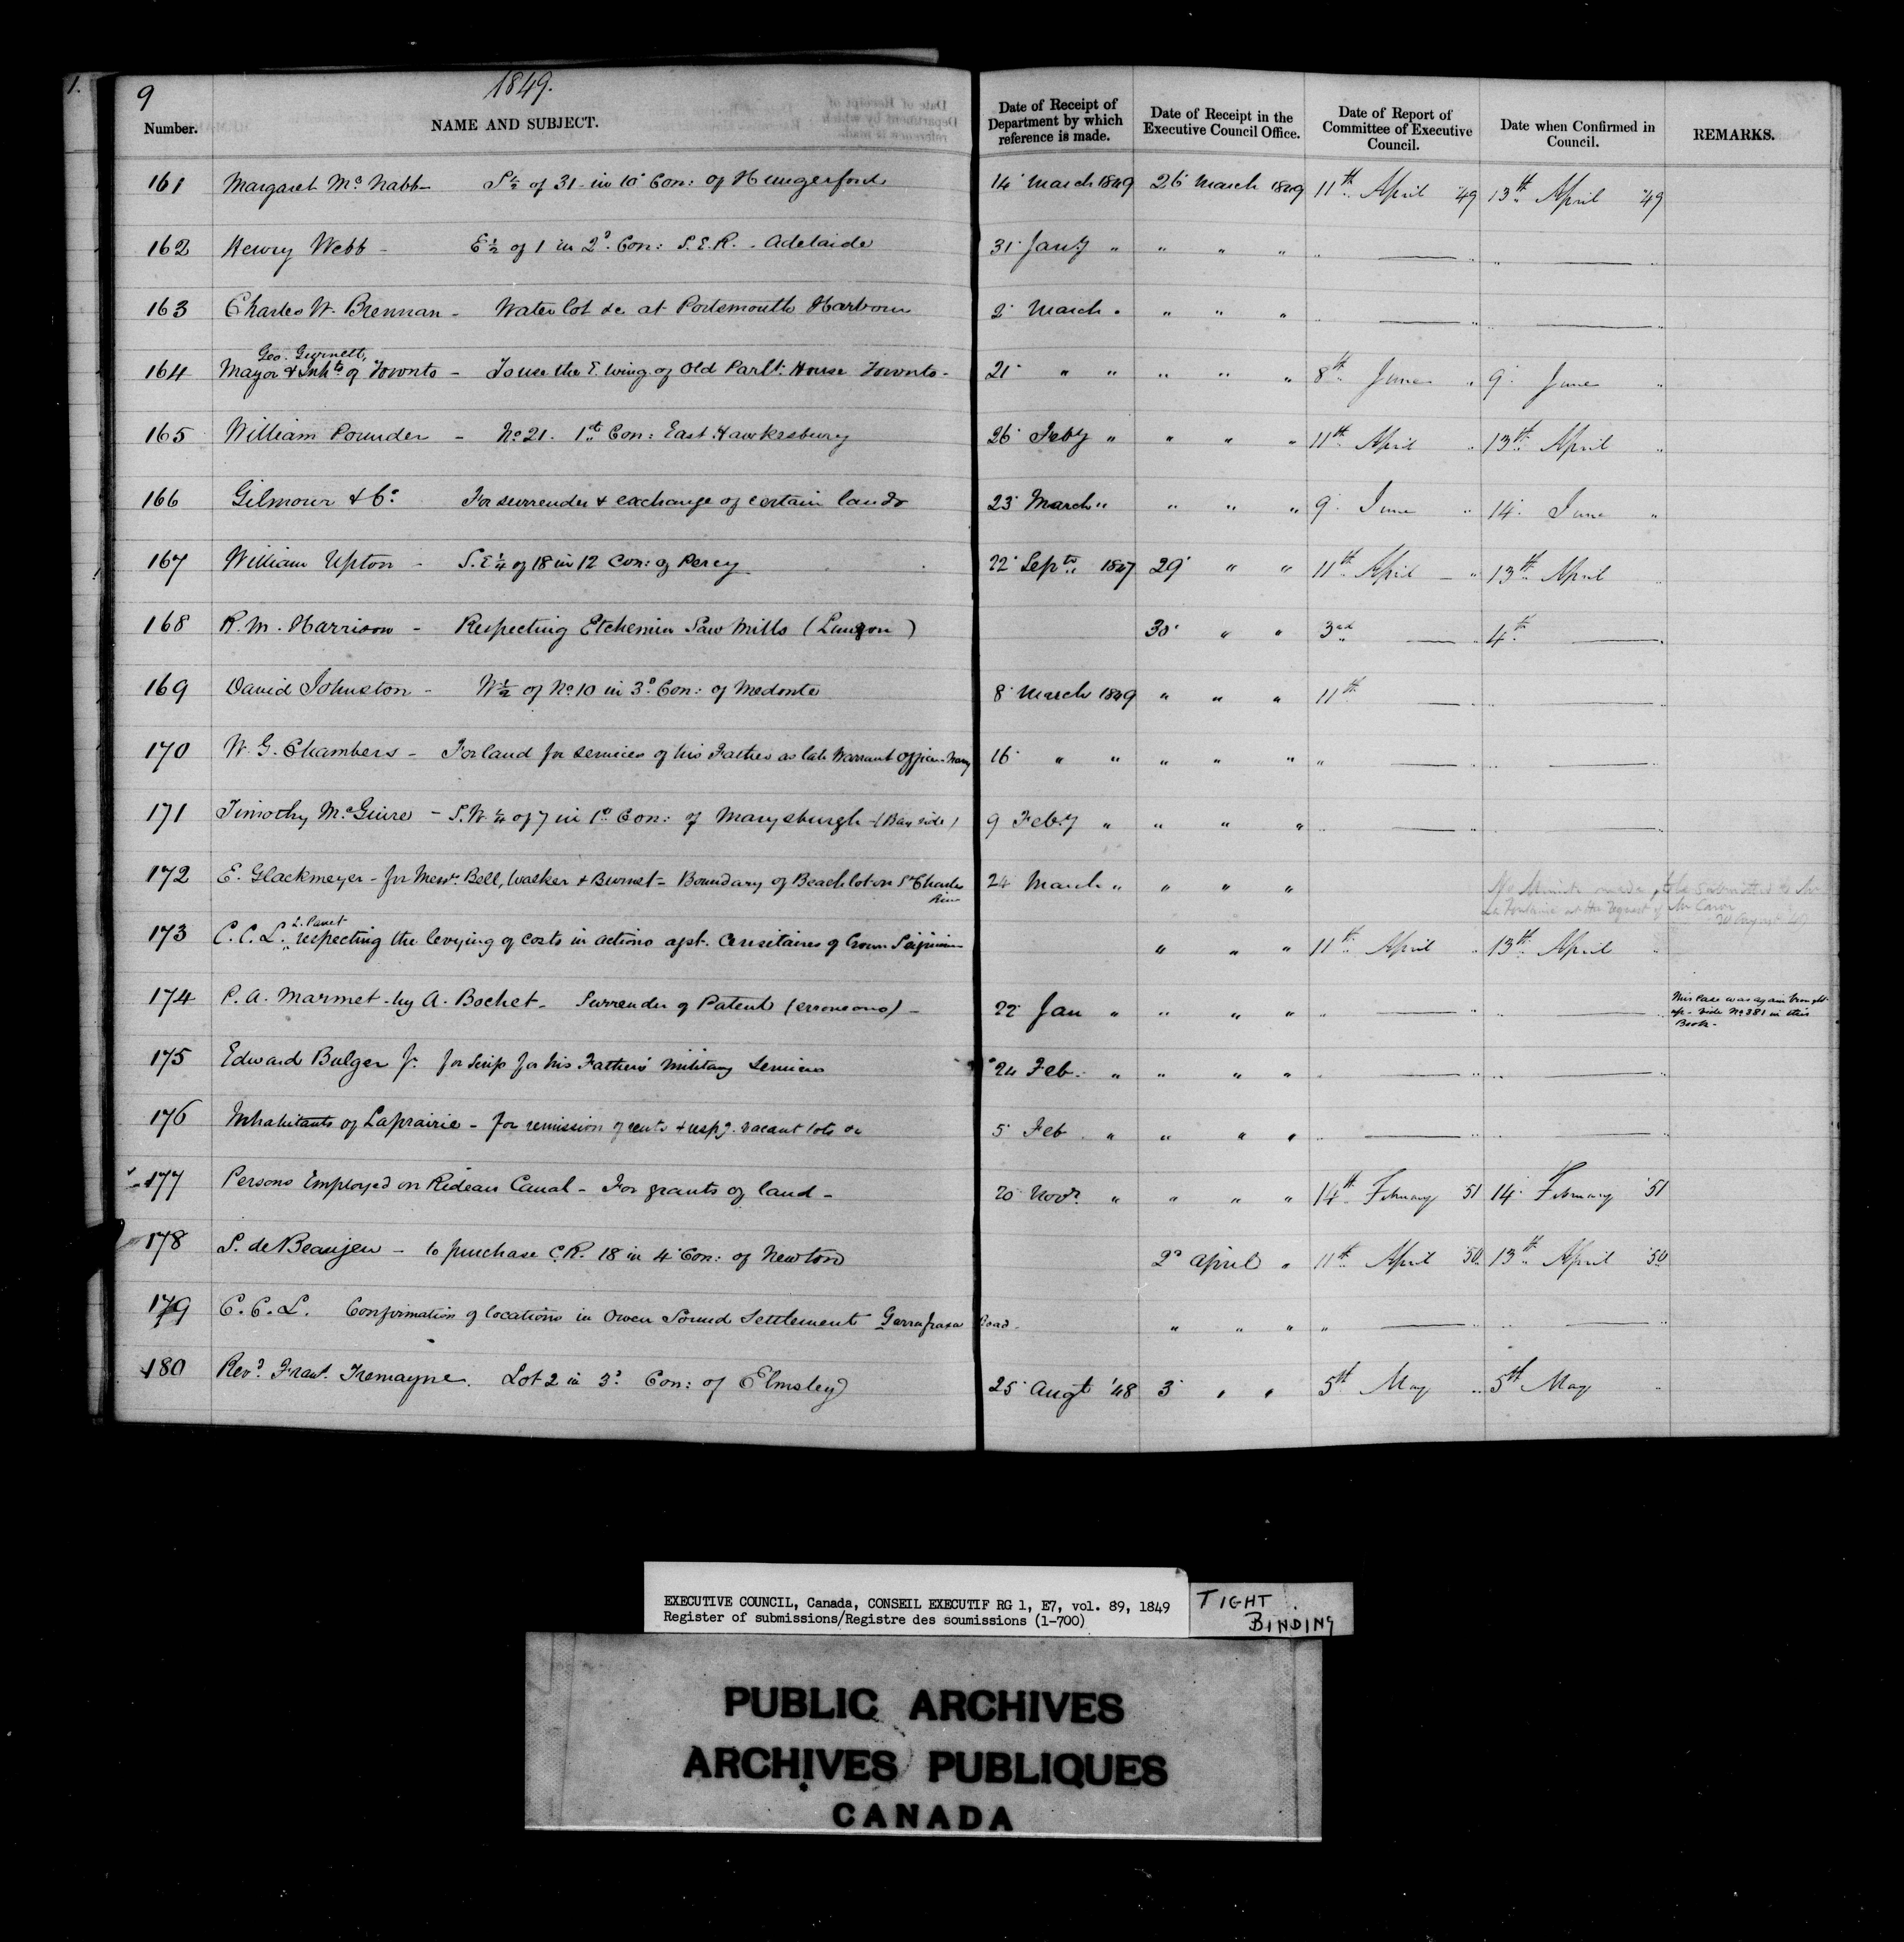 1.
9 1849.
Number. NAME AND SUBJECT. Date of Receipt of Department by which reference is made. Date of Receipt in the Executive Council Office. Date of Report of Committee of Executive Council. Date when Confirmed in Council. REMARKS.
161 Margaret Mc Nabb - S½ of 31 in 10 Con: of Hungerford 14 March 1849 26 March 1849 11th April '49 13th April '49
162 Henry Webb - E½ of 1 in 2d Con: S.E.R. - Adelaide 31 Jany " " " " " — " " — "
163 Charles W. Brennan - Water lot &c at Portsmouth Harbour 2 March " " " " " — " — "
Geo. Gurnett,
164 Mayor & Inhts of Toronto - To use the E. wing of Old Parlt. House Toronto - 21 " " " " " 8th June " 9 June "
165 William Pounder - No 21. 1st Con: East Hawkesbury 26 Feby " " " " 11th April " 13th April "
166 Gilmour & Co For surrender & exchange of certain lands 23 March " " " " 9 June " 14 June "
167 William Upton - S.E¼ of 18 in 12 Con: of Percy 22 Septr 1847 29 " " 11th April - " 13th April "
168 R. M. Harrison - Respecting Etchemin Saw Mills (Lauzon) 30 " " 3rd — " 4th — "
169 David Johnston - W½ of No 10 in 3d Con: of Medonte 8 March 1849 " " " 11th — " —
170 W. G. Chambers - For land for services of his Father as late Warrant Officer - Navy 16 " " " " " " — " " — "
171 Timothy McGuire - S.W.¼ of 7 in 1st Con: of Marysburgh - (Bay side) 9 Feby " " " " " — " — "
172 E. Glackmeyer - for Messrs. Bell, Walker & Burnet - Boundary of Beach lot on St Charles 24 March " " " " No Minute made, to be submitted to Mr
River La Fontaine at the request of Mr Caron
L. Panet
173 C. C. L. respecting the levying of costs in actions agst. Censitaires of Crown " " " 11th April " 13th April "
174 P. A. Marmet - by A. Bochet - Surrender of Patent (erroneous) - 22 Jan " " " " " — " " — " This Case was again brought
up - vide No 381 in this
Book -
175 Edward Bulger Jr. for Scrip for his Father's military Services 24 Feb. " " " " " — " " — "
176 Inhabitants of Laprairie - for remission of rents & respg. vacant lots &c 5 Feb " " " " " — " " — "
177 Persons Employed on Rideau Canal - For grants of land - 20 Novr. " " " " 14th February 51 14 February '51
178 S. de Beaujeu - to purchase C.R. 18 in 4 Con: of Newton 2d April " 11th April '50 13th April '50
179 C. C. L. Confirmation of locations in Owen Sound Settlement Garrafraxa Road. " " " " — " " — "
180 Revd. Frans. Tremayne. Lot 2 in 3d Con: of Elmsley 25 Augt '48 3 " " 5th May " 5th May "
EXECUTIVE COUNCIL, Canada, CONSEIL EXECUTIF RG 1, E7, vol. 89, 1849
Register of submissions/Registre des soumissions (1-700)
TIGHT
BINDING
PUBLIC ARCHIVES
ARCHIVES PUBLIQUES
CANADA